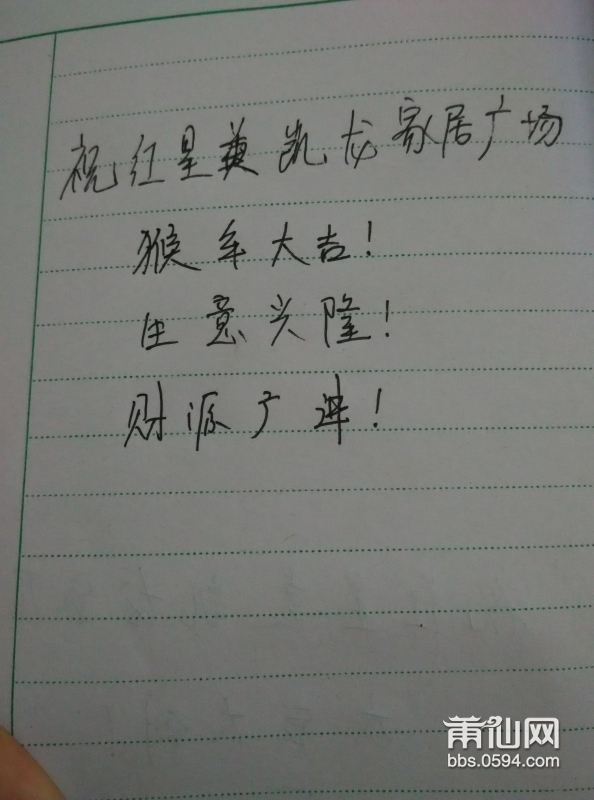 祝红星美凯龙家居广场
猴年大吉!
生意兴隆!
财源广进!
莆仙网
bbs.0594.com